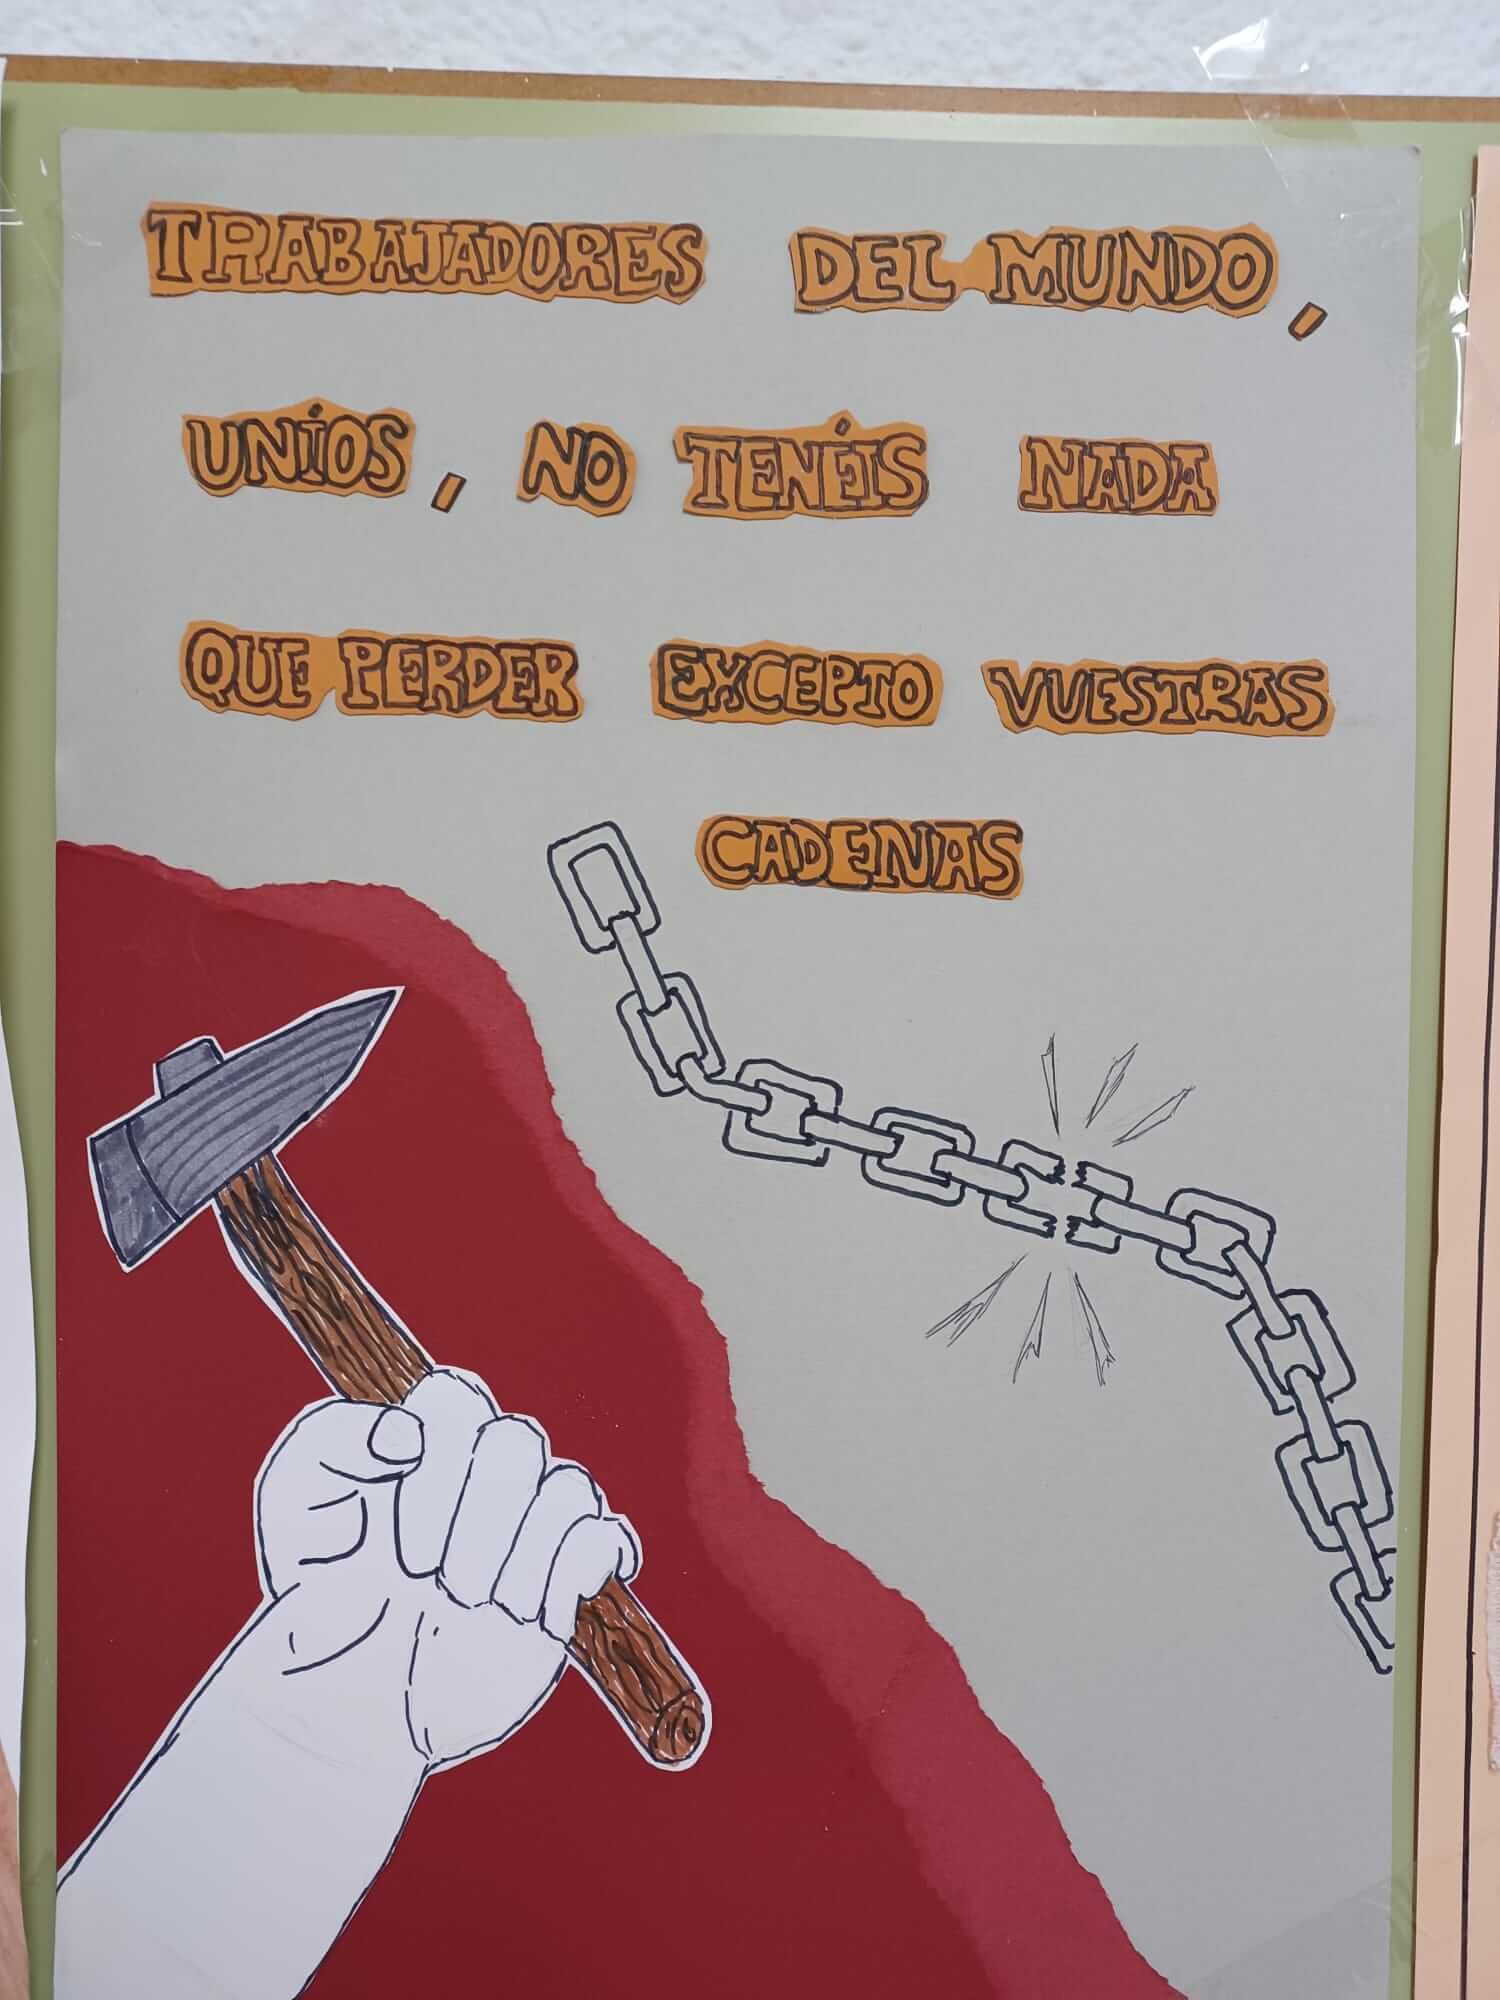 TRABAJADORES DEL MUNDO,
UNÍOS, NO TENÉIS NADA
QUE PERDER EXCEPTO VUESTRAS
CADENAS